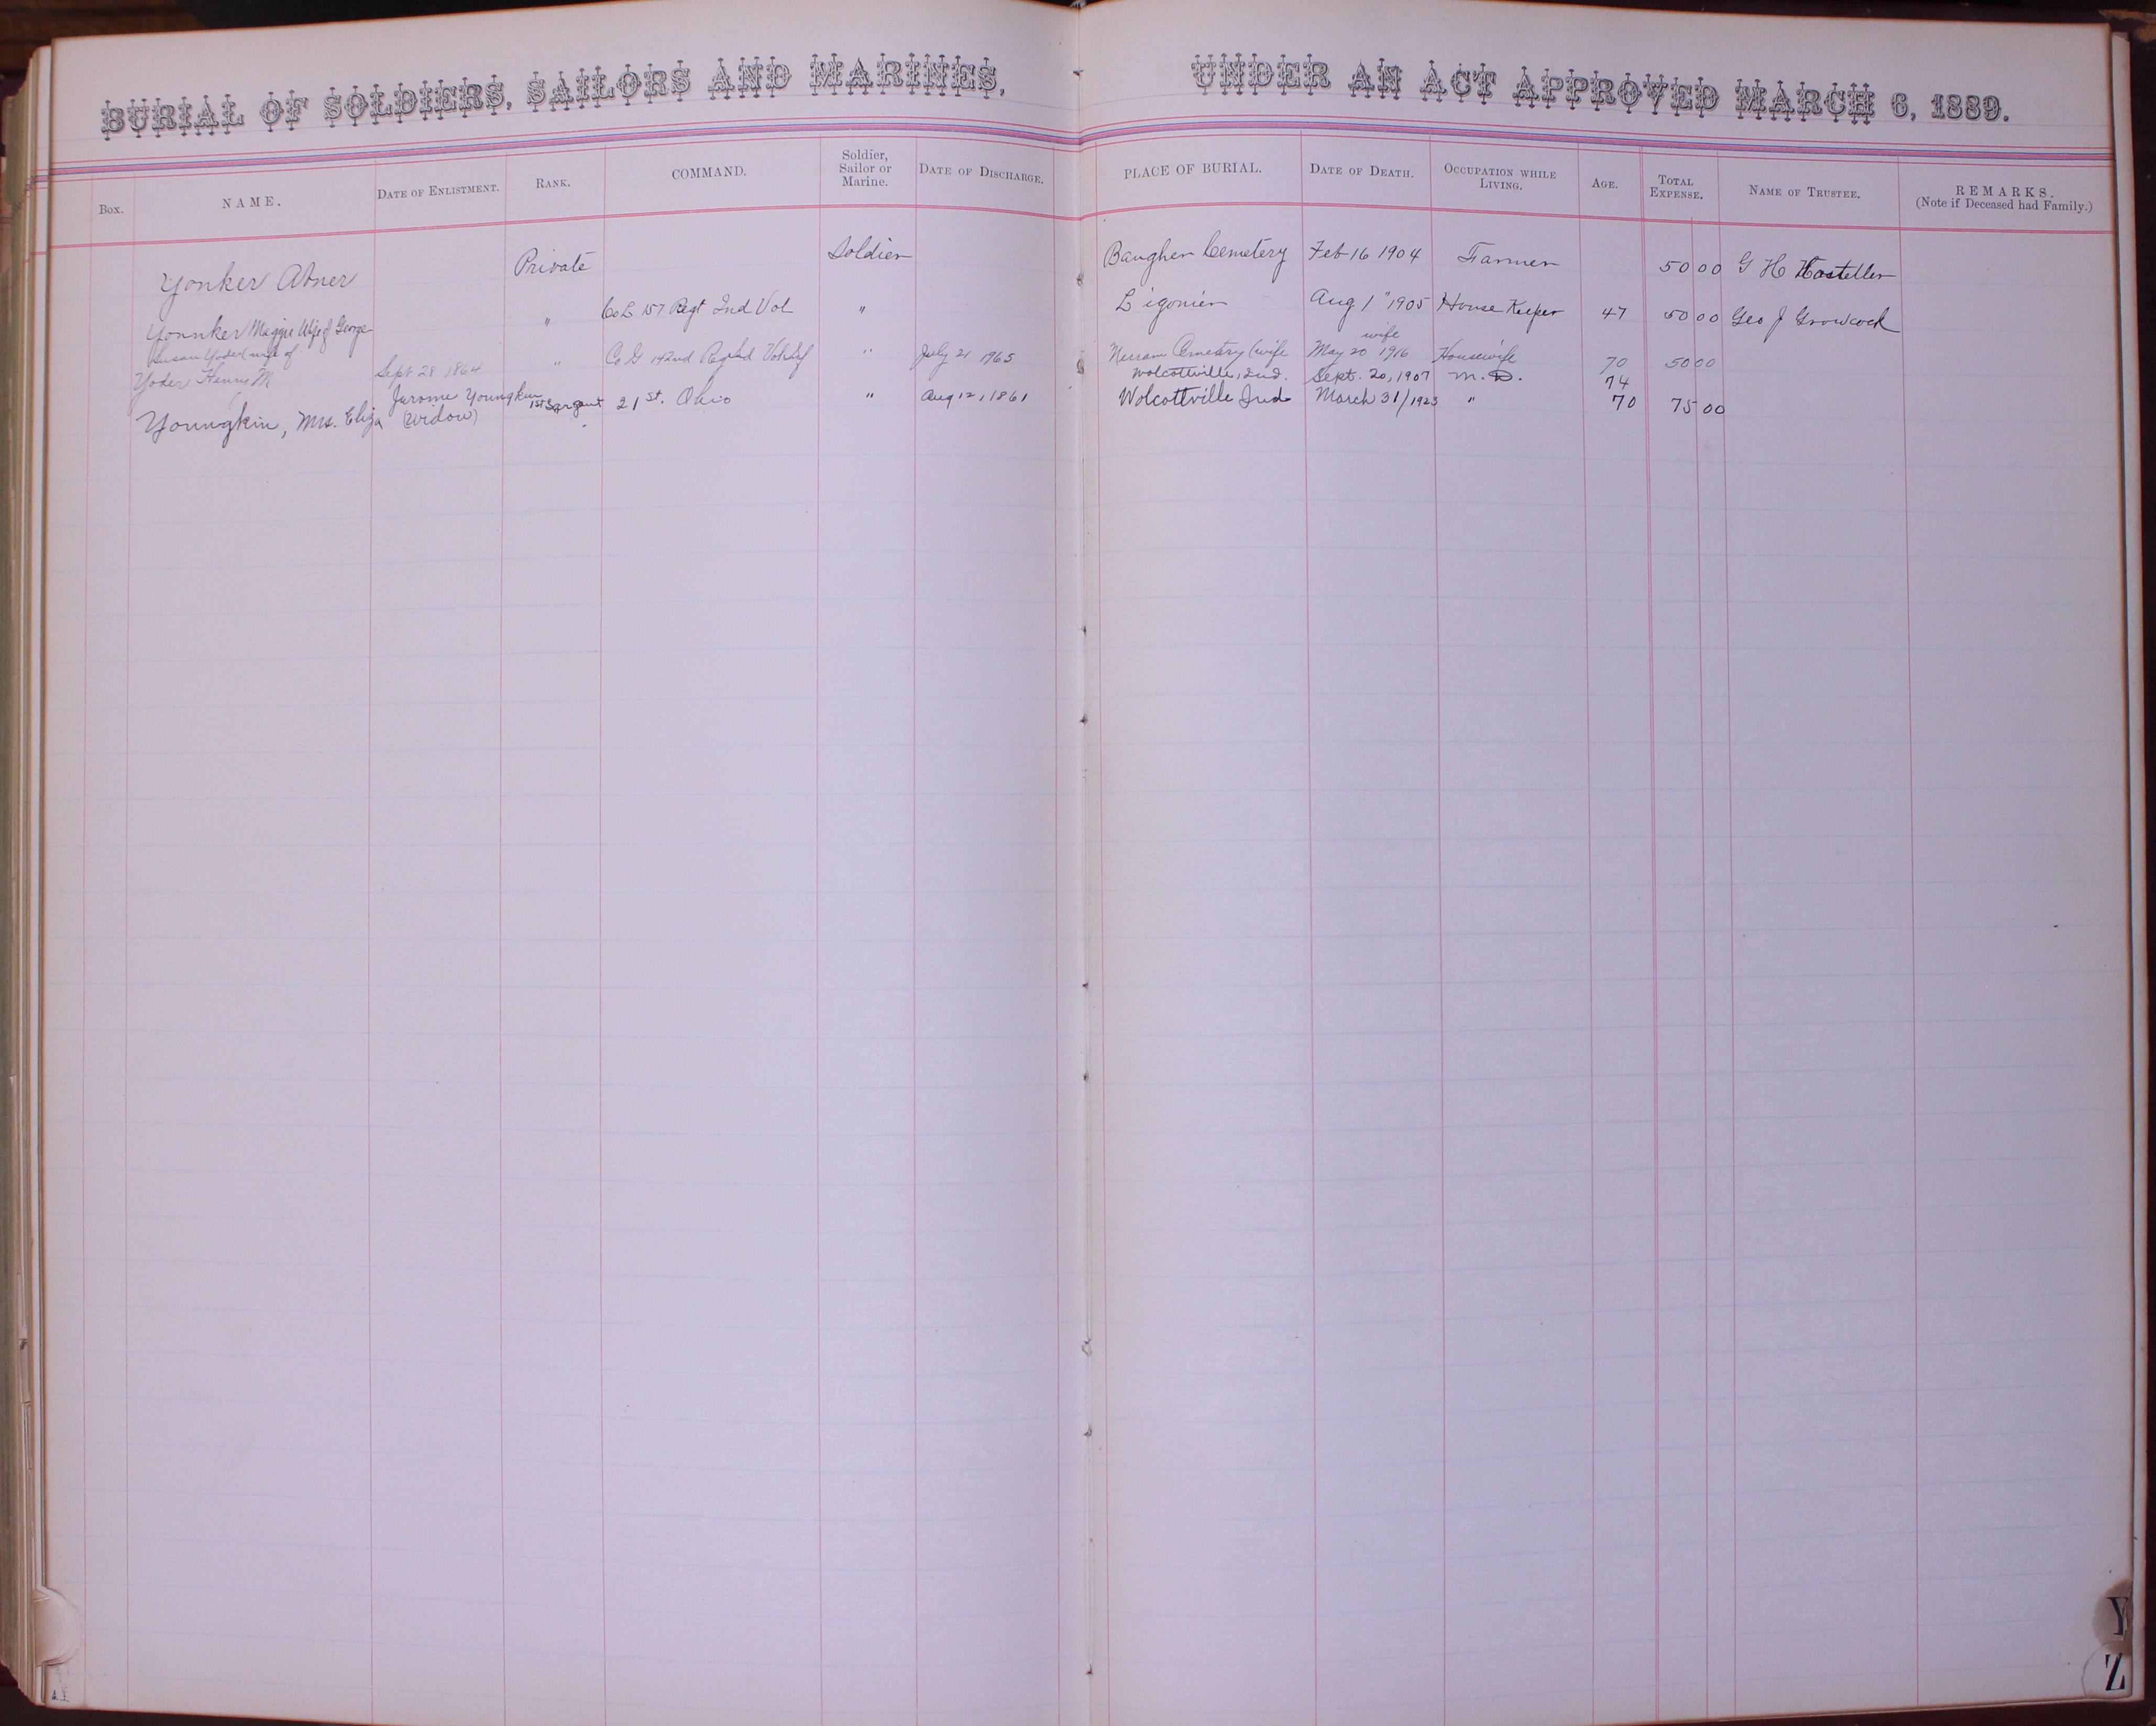 BURIAL OF SOLDIERS, SAILORS AND MARINES, UNDER AN ACT APPROVED MARCH 6, 1889.
Box. NAME. DATE OF ENLISTMENT. RANK. COMMAND. Soldier, Sailor or Marine. DATE OF DISCHARGE. PLACE OF BURIAL. DATE OF DEATH. OCCUPATION WHILE LIVING. AGE. TOTAL EXPENSE. NAME OF TRUSTEE. REMARKS. (Note if Deceased had Family.)
Yonker Abner Private Soldier Baugher Cemetery Feb 16 1904 Farmer 50 00 G H Hosteller
Yonnker Maggie Wife of George " Co E 157 Regt Ind Vol " Ligonier Aug 1" 1905 House Keeper 47 50 00 Geo J Growcock
Susan Yoder (wife of wife
Yoder Henry M Sept 28 1864 " Co G 142nd Regt Ind Vol Inf " July 21 1965 Merriam Cemetery (wife May 20 1916 Housewife 70 50 00
Wolcottville, Ind. Sept. 20, 1907 M. D. 74
Youngkin, Mrs. Eliza Jerome Youngkin (Widow) 1st Sargant 21 St. Ohio " Aug 12, 1861 Wolcottville Ind March 31/1923 " 70 75 00
Y
Z